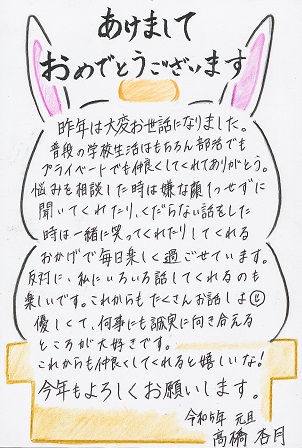 あけまして
おめでとうございます
昨年は大変お世話になりました。
普段の学校生活はもちろん部活でも
プライベートでも仲良くしてくれてありがとう。
悩みを相談した時は嫌な顔1つせずに
聞いてくれたり、くだらない話をした
時は一緒に笑ってくれたりしてくれる
おかげで毎日楽しく過ごせています。
反対に、私にいろいろ話してくれるのも
楽しいです。これからもたくさんお話しよ
優しくて、何事にも誠実に向き合える
ところが大好きです。
これからも仲良くしてくれると嬉しいな!
今年もよろしくお願いします。
令和5年 元旦
高橋 杏月